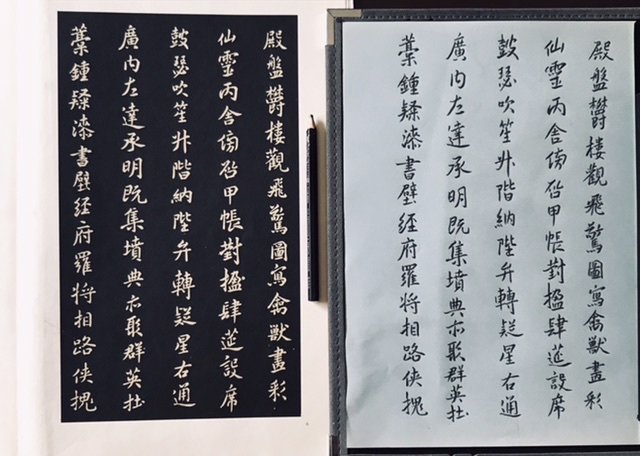 殿盤鬱樓觀飛驚圖寫禽獸畫彩
仙靈丙舍傍啓甲帳對楹肆筵設席
鼓瑟吹笙升階納陛弁轉疑星右通
廣内左達承明既集墳典亦聚群英杜
藁鍾隸漆書壁經府羅將相路俠槐
殿盤鬱樓觀飛驚圖寫禽獸畫彩
仙靈丙舍傍啓甲帳對楹肆筵設席
鼓瑟吹笙升階納陛弁轉疑星右通
廣内左達承明既集墳典亦聚群英杜
藁鍾隸漆書壁經府羅將相路俠槐